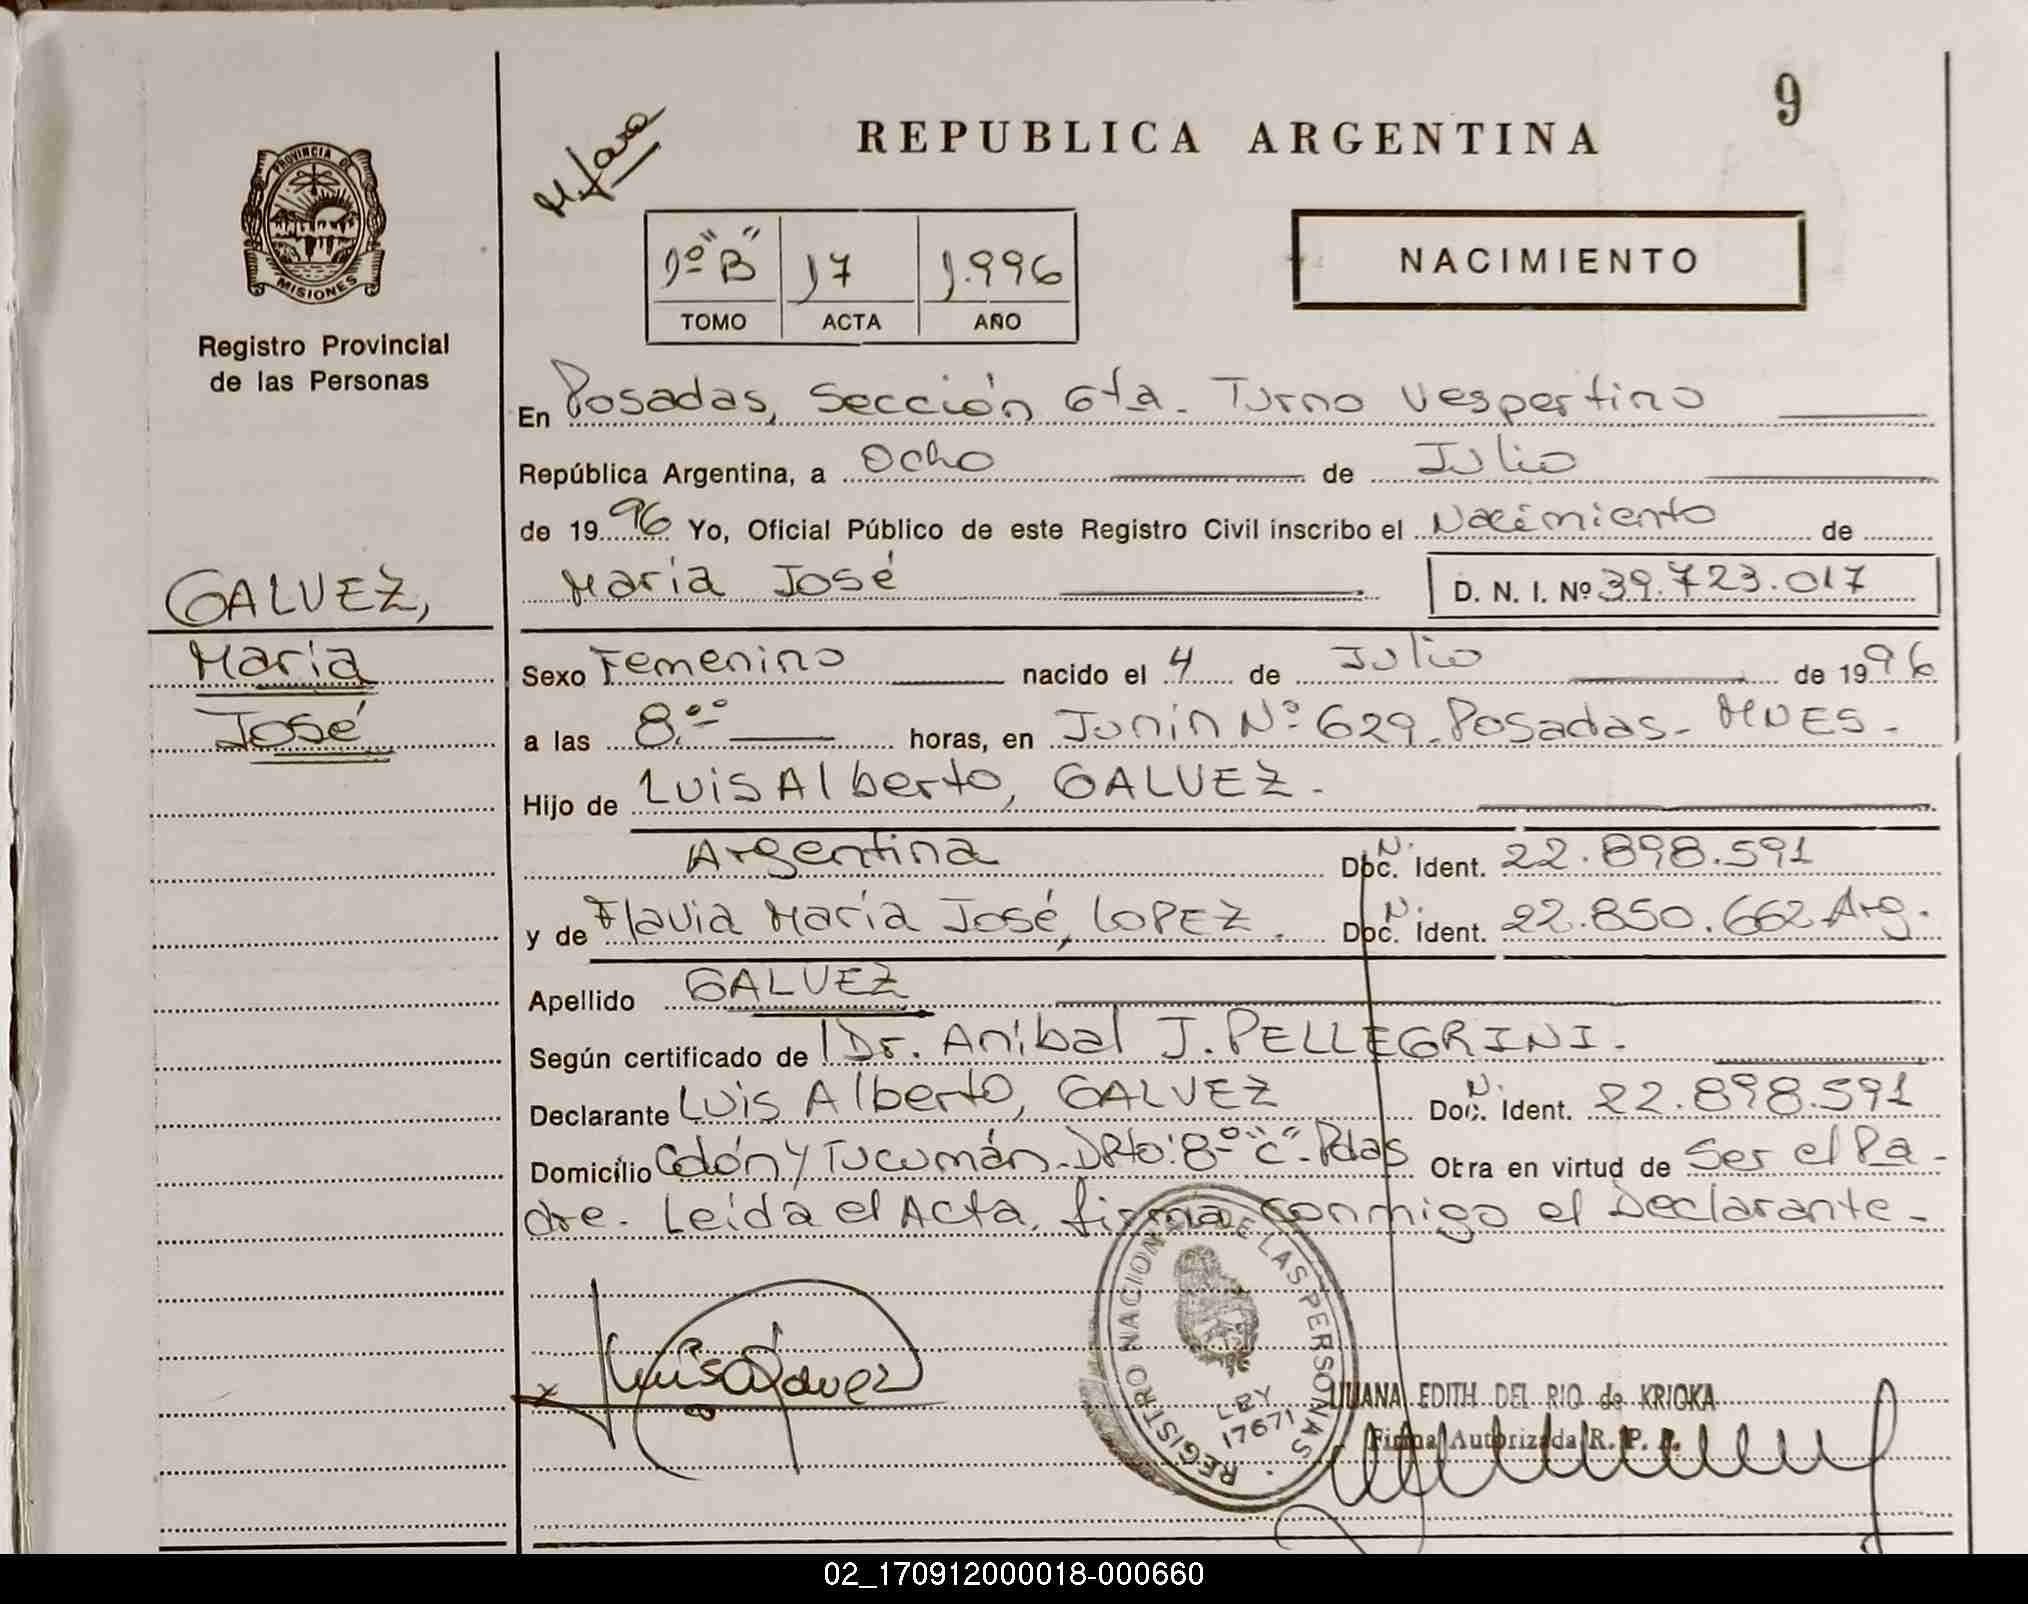 9
REPUBLICA ARGENTINA
PROVINCIA DE
MISIONES
Registro Provincial
de las Personas
1º "B" 17 1.996
TOMO ACTA AÑO
NACIMIENTO
En Posadas, Sección 6ta. Turno Vespertino
República Argentina, a Ocho de Julio
de 1996 Yo, Oficial Público de este Registro Civil inscribo el Nacimiento de
María José D. N. I. Nº 39.723.017
GALVEZ,
María
José
Sexo Femenino nacido el 4 de Julio de 1996
a las 8.00 horas, en Junin Nº 629. Posadas- MNES-
Hijo de Luis Alberto, GALVEZ.
Argentina Doc. N. Ident. 22.898.591
y de Flavia María José, LOPEZ. Doc. N. Ident. 22.850.662 Arg.
Apellido GALVEZ
Según certificado de Dr. Aníbal J. PELLEGRINI.
Declarante Luis Alberto, GALVEZ Doc. N. Ident. 22.898.591
Domicilio Colón y Tucumán. DPto: 8º "C"- Pdas Obra en virtud de Ser el Pa-
dre. Leída el Acta, firma conmigo el Declarante-
REGISTRO NACIONAL DE LAS PERSONAS
LEY
17671
LILIANA EDITH DEL RIO de KRIOKA
Firma Autorizada R. P. P.
02_170912000018-000660